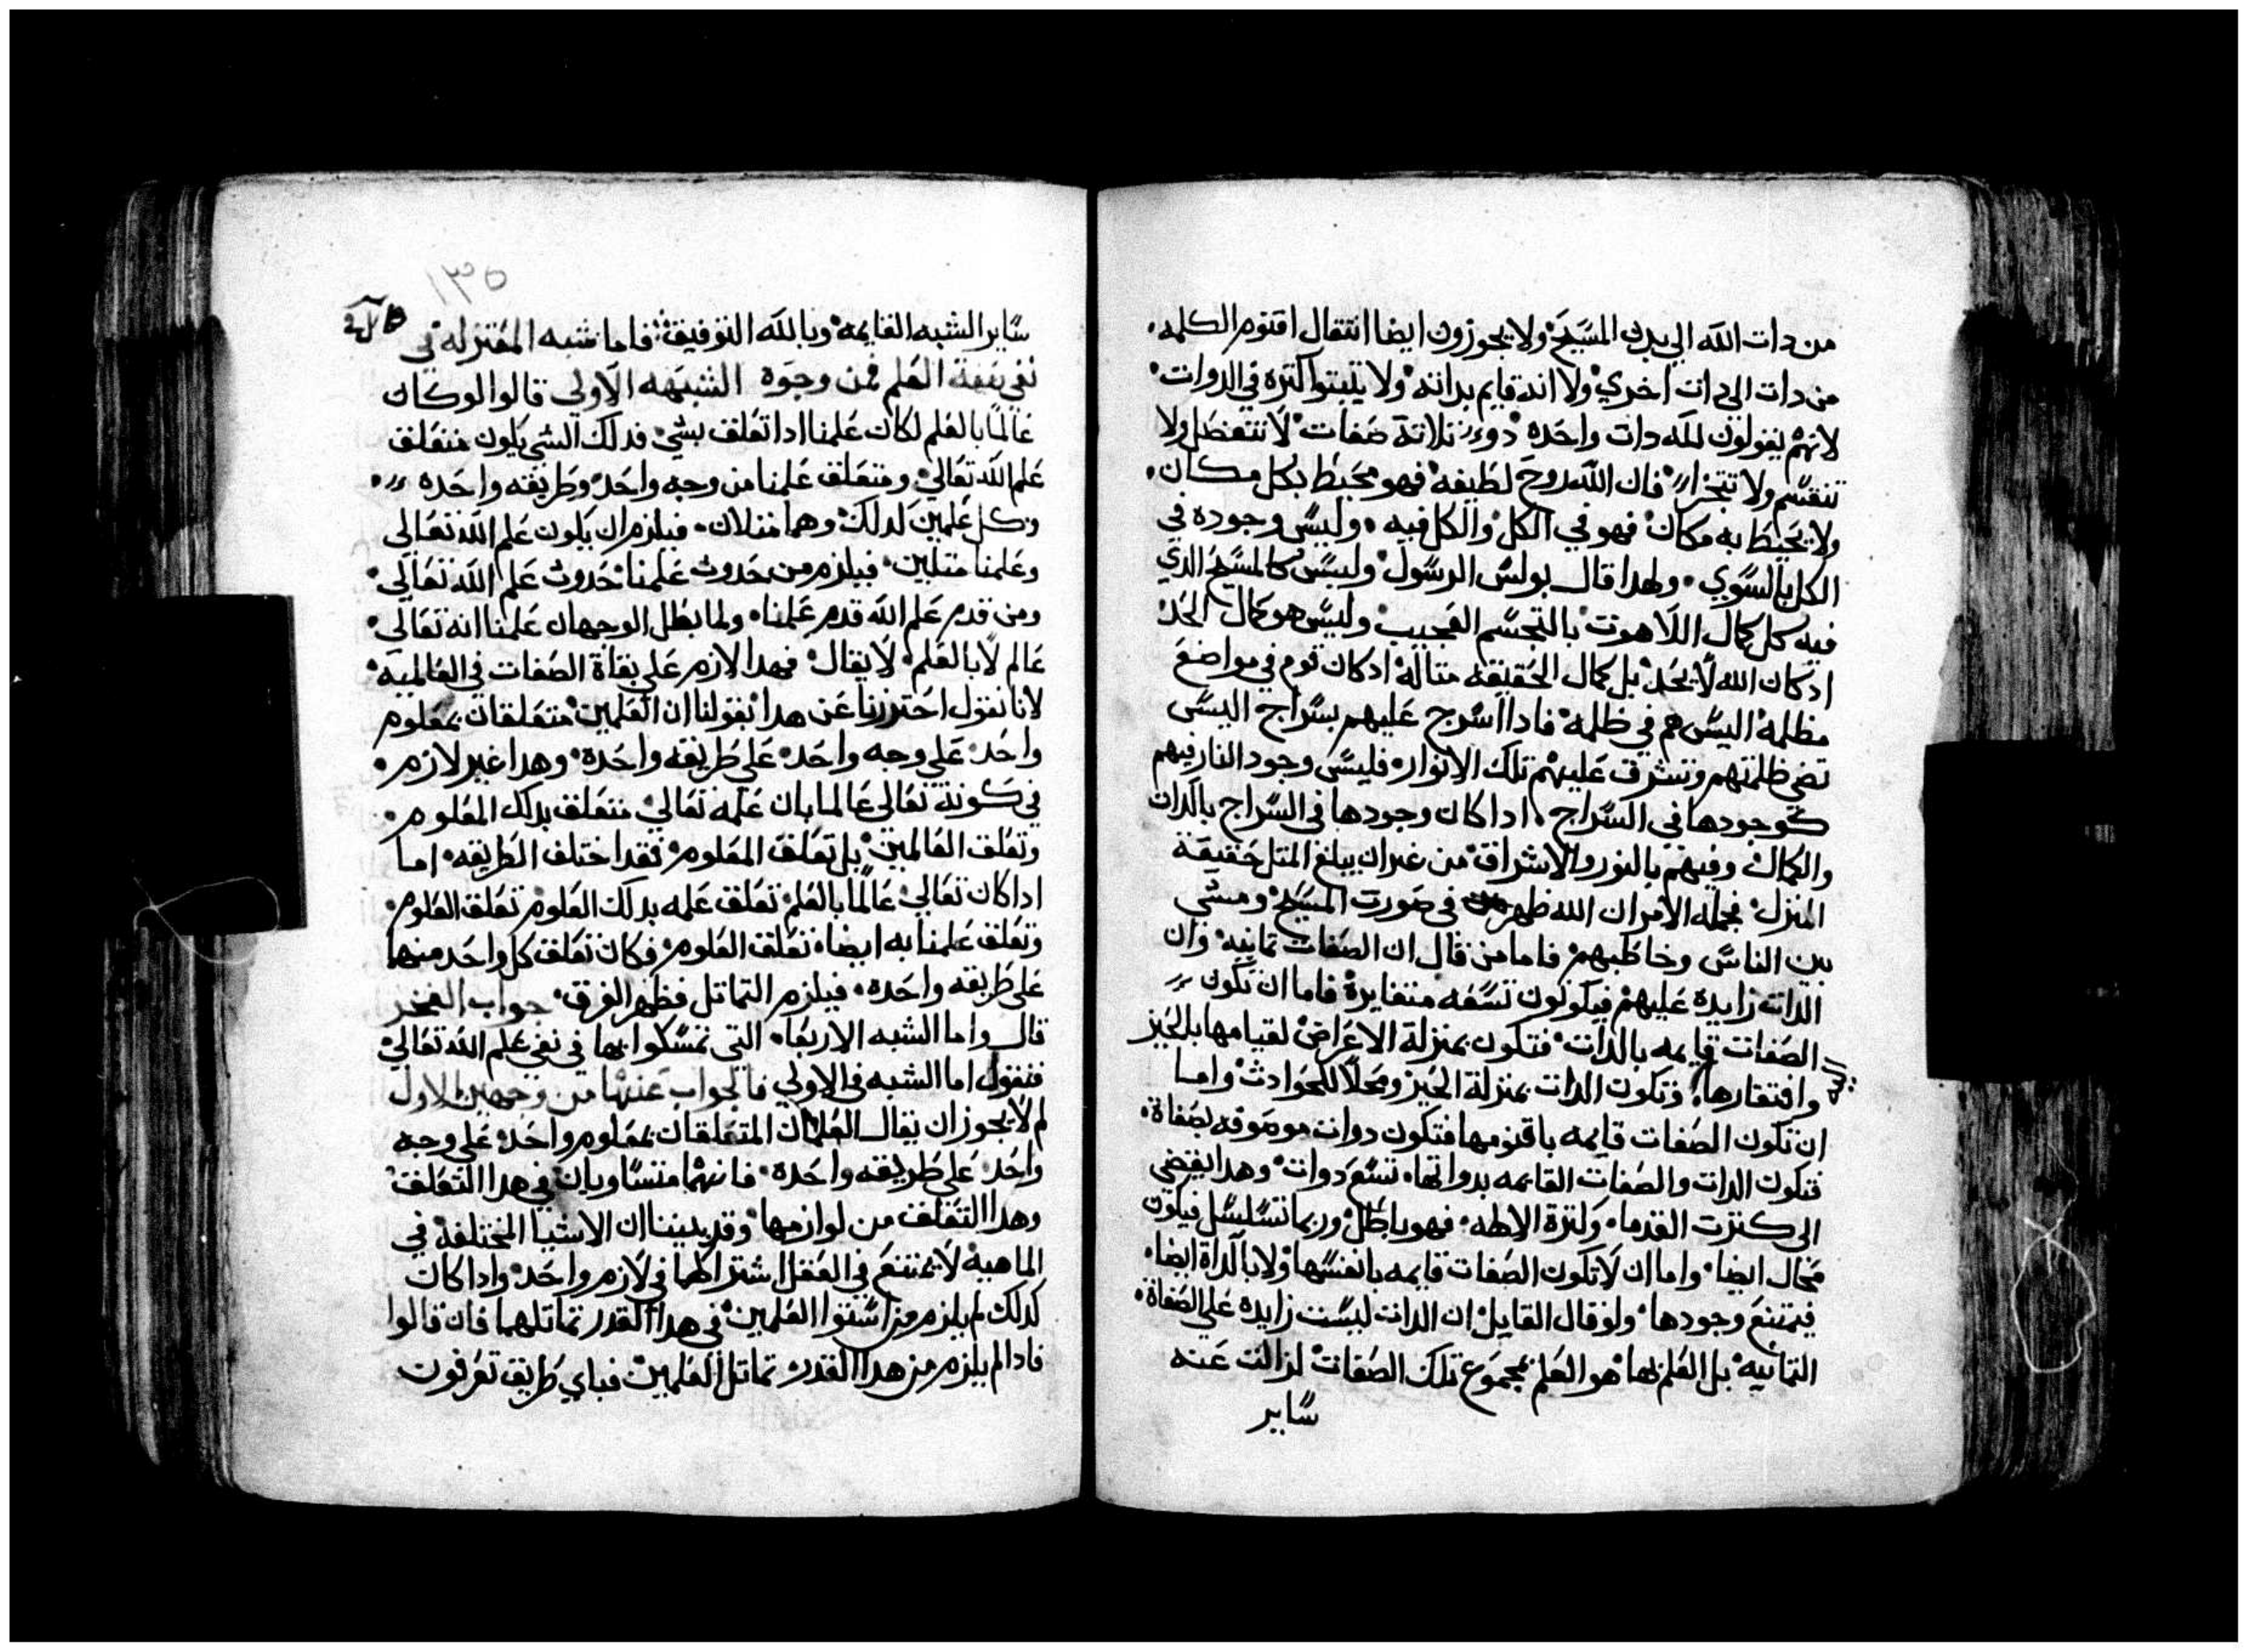 من دات الله الي بدن المسيح ولا يجوزون ايضا انتقال اقنوم الكلمه
من دات الي دات اخري ولا انه قايم بداته ولا يتبتوا كتره في الدوات
لانهم يقولون لله دات واحده دو تلاتة صفات لا تتفضل ولا
تنقسم ولا تتجزا فان الله روح لطيفه فهو محيط بكل مكان
ولا يحيط به مكان فهو في الكل والكل فيه وليس وجوده في
الكل بالسوي ولهدا قال بولس الرسول وليس كالمسيح الدي
فيه كل كمال اللاهوت بالتجسم العجيب وليس هو كمال الحد
ادكان الله لا يحد بل كمال الحقيقه متاله ادكان قوم في مواضع
مظلمه اليس هم في ظلمه فادا اسرج عليهم بسراج اليس
تضي ظلمتهم وتشرق عليهم تلك الانوار فليس وجود النار فيهم
كوجودها في السراج ادا كان وجودها في السراج بالدات
والكمال وفيهم بالنور والاشراق من غير ان يبلغ المتل حقيقة
المنزل فجملة الامر ان الله ظهر في صورت المسيح ومشي
بين الناس وخاطبهم فاما من قال ان الصفات تمانيه وان
الدات زايده عليهم فيكونون تسعه متغايرة فاما ان تكون
الصفات قايمه بالدات فتكون بمنزلة الاعراض لقيامها بالحيز
وافتقارها وتكون الدات بمنزلة الحيز ومحلا للحوادث واما
ان تكون الصفات قايمه باقنومها فتكون دوات موصوفه بصفاة
فتكون الدات والصفات القايمه بدواتها تسع دوات وهدا يفضي
الي كترت القدما وكترة الالهه فهو باطل وربما تسلسل فيكون
محال ايضا واما ان لا تكون الصفات قايمه بانفسها ولا بالداة ايضا
فيمتنع وجودها ولو قال القايل ان الدات ليست زايده علي الصفاة
التمانيه بل العلم بها هو العلم بمجموع تلك الصفات لزالت عنه
ساير
١٣٥
ساير الشبه القايمه وبالله التوفيق فاما شبه المعتزله في
نفي صفة العلم فمن وجوه الشبهه الاولي قالوا لو كان
عالما بالعلم لكان علمنا ادا تعلق بشي فدلك الشي يكون متعلق
علم الله تعالي ومتعلق علمنا من وجه واحد وطريقه واحده
وكل علمين كدلك وهما متلان فيلزم ان يكون علم الله تعالي
وعلمنا متلين فيلزم من حدوت علمنا حدوت علم الله تعالي
ومن قدم علم الله قدم علمنا ولما بطل الوجهان علمنا انه تعالي
عالم لا بالعلم لا يقال فهدا لازم علي بقاة الصفات في العالميه
لانا نقول احترزنا عن هدا بقولنا ان العلمين متعلقان بمعلوم
واحد علي وجه واحد علي طريقه واحدة وهدا غير لازم
في كونة تعالي عالما بان علمه تعالي متعلق بدلك المعلوم
وتعلق العالمين بل تعلق المعلوم فقد اختلف الطريقه اما
ادا كان تعالي عالما بالعلم تعلق علمه بدلك العلوم تعلق العلوم
وتعلق علمنا به ايضا تعلق العلوم فكان تعلق كل واحد منهما
علي طريقه واحده فيلزم التماتل فظهر الفرق جواب الفخر
قال واما الشبه الاربعا التي تمسكوا بها في نفي علم الله تعالي
فنقول اما الشبه في الاولي فالجواب عنها من وجهين الاول
لم لا يجوز ان يقال العلمان المتعلقان بمعلوم واحد علي وجه
واحد علي طريقه واحده فانهما متساويان في هدا التعلق
وهدا التعلق من لوازمها وقد بيننا ان الاشيا المختلفة في
الماهية لا يمتنع في العقل اشتراكهما في لازم واحد وادا كان
كدلك لم يلزم من استوا العلمين في هدا القدر تماتلهما فان قالوا
فادا لم يلزم من هدا القدر تماتل العلمين فباي طريق تعرفون